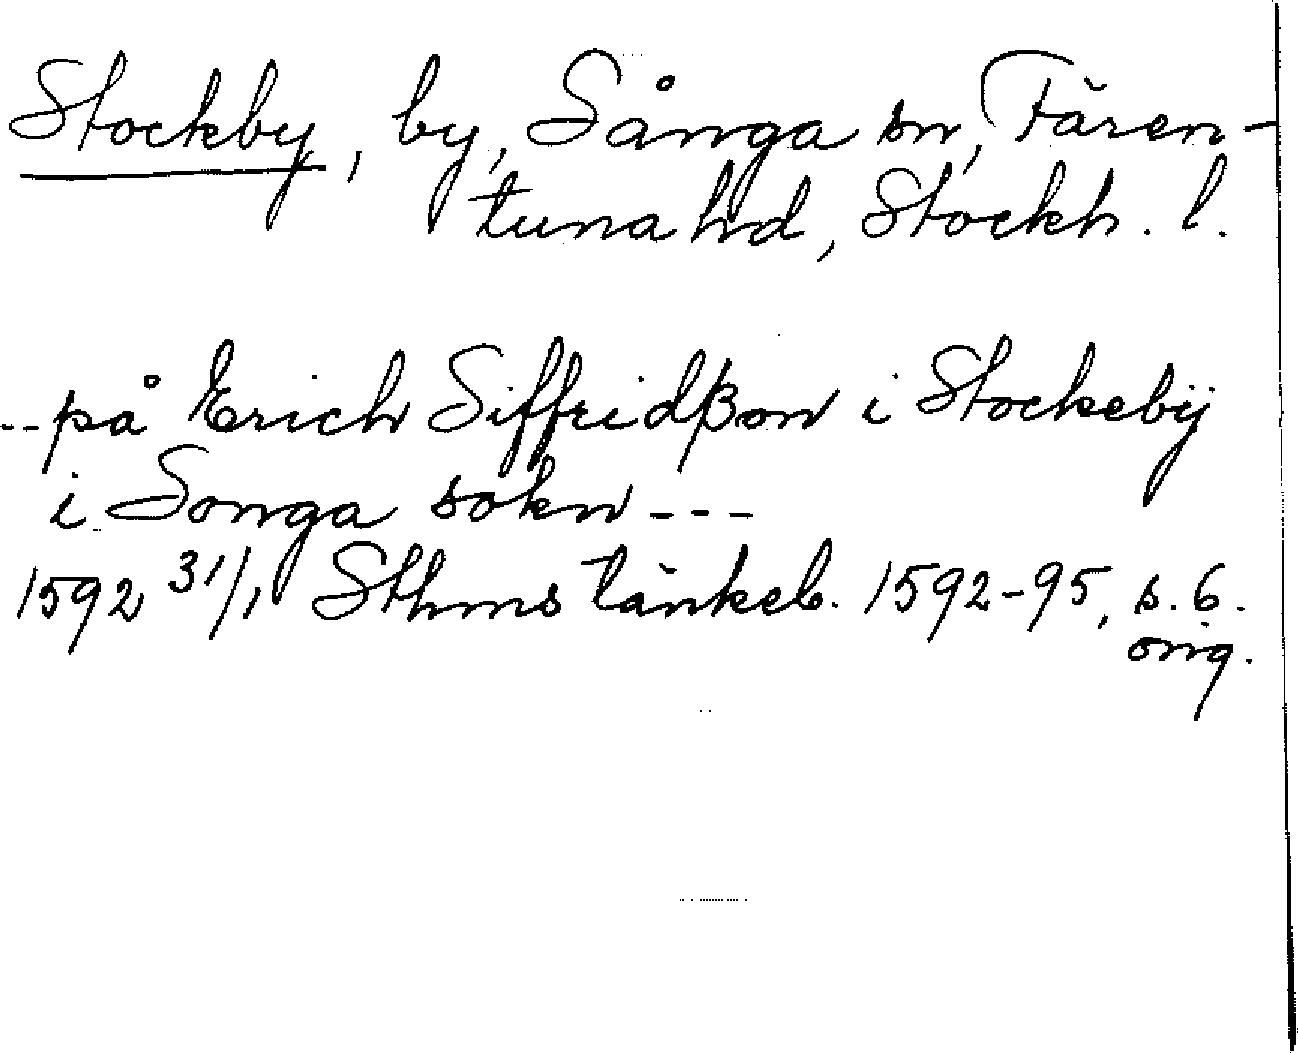 Stockby, by, Sånga sn, Fären-
tuna hd, Stockh. l.
--på Erich Siffridßon i Stockebÿ
i Songa sokn ---
1592 31/1 Sthms tänkeb. 1592-95, s. 6.
orig.